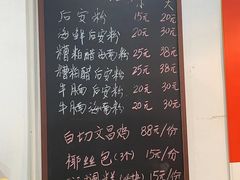 小 大
后安粉 15元 20元
海鲜后安粉 20元 30元
糟粕醋海南粉 25元 38元
糟粕醋后安粉 25元 38元
牛腩后安粉 20元 30元
牛腩海南粉 20元 30元
白切文昌鸡 88元/份
椰丝包(3个) 15元/份
15元/份